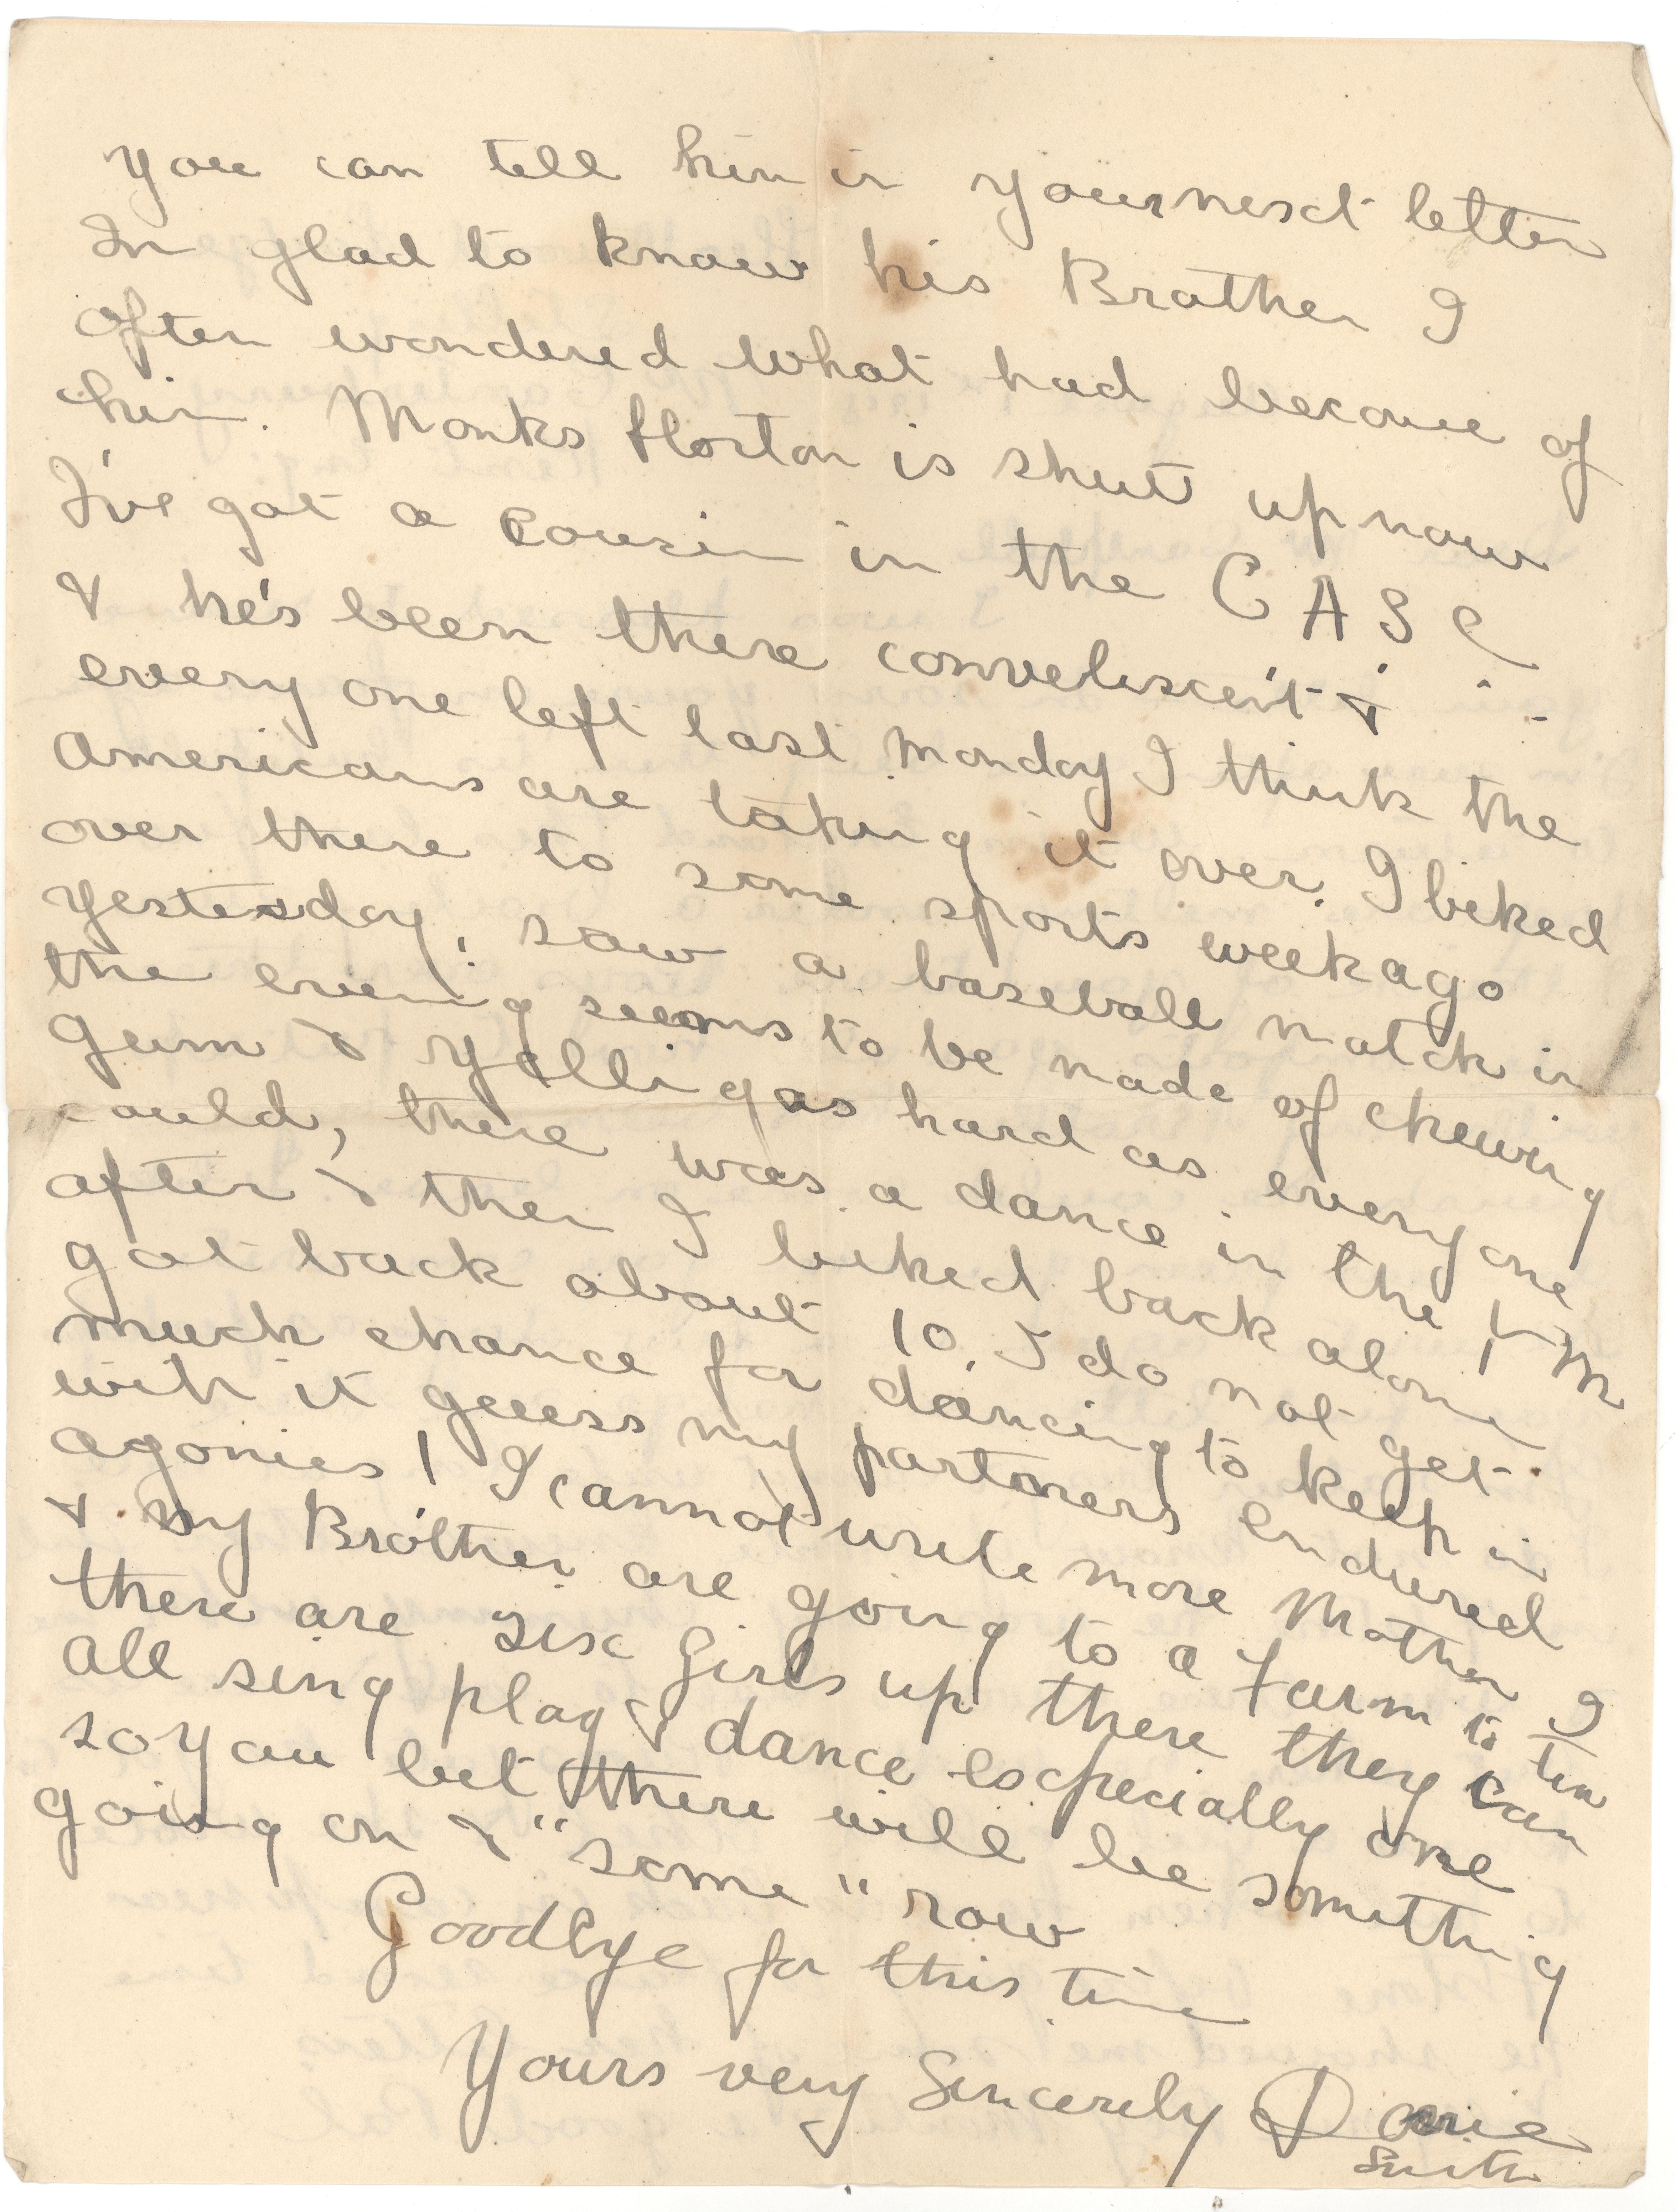 you can tell him in your next letter
Im glad to know his Brother I
often wondered what had become of
him. Monks Horton is shut up now
I've got a cousin in the C A S C
& he's been there convelescent &
every one left last Monday I think the
Americans are taking it over. I biked
over there to some sports week ago
yesterday, saw a baseball match in
the evening seems to be made of chewing
gum & yelling as hard as everyone
could, there was a dance in the Y M
after & then I biked back alone
got back about 10. I do not get
much chance for dancing to keep in
with it guess my partners endured
agonies! I cannot write more Mother I
& my Brother are going to a Farm to tea
there are six Girls up there they can
all sing play & dance especially one
so you bet there will be something
going on & "some" row
Goodbye for this time
Yours very Sincerely
Smith